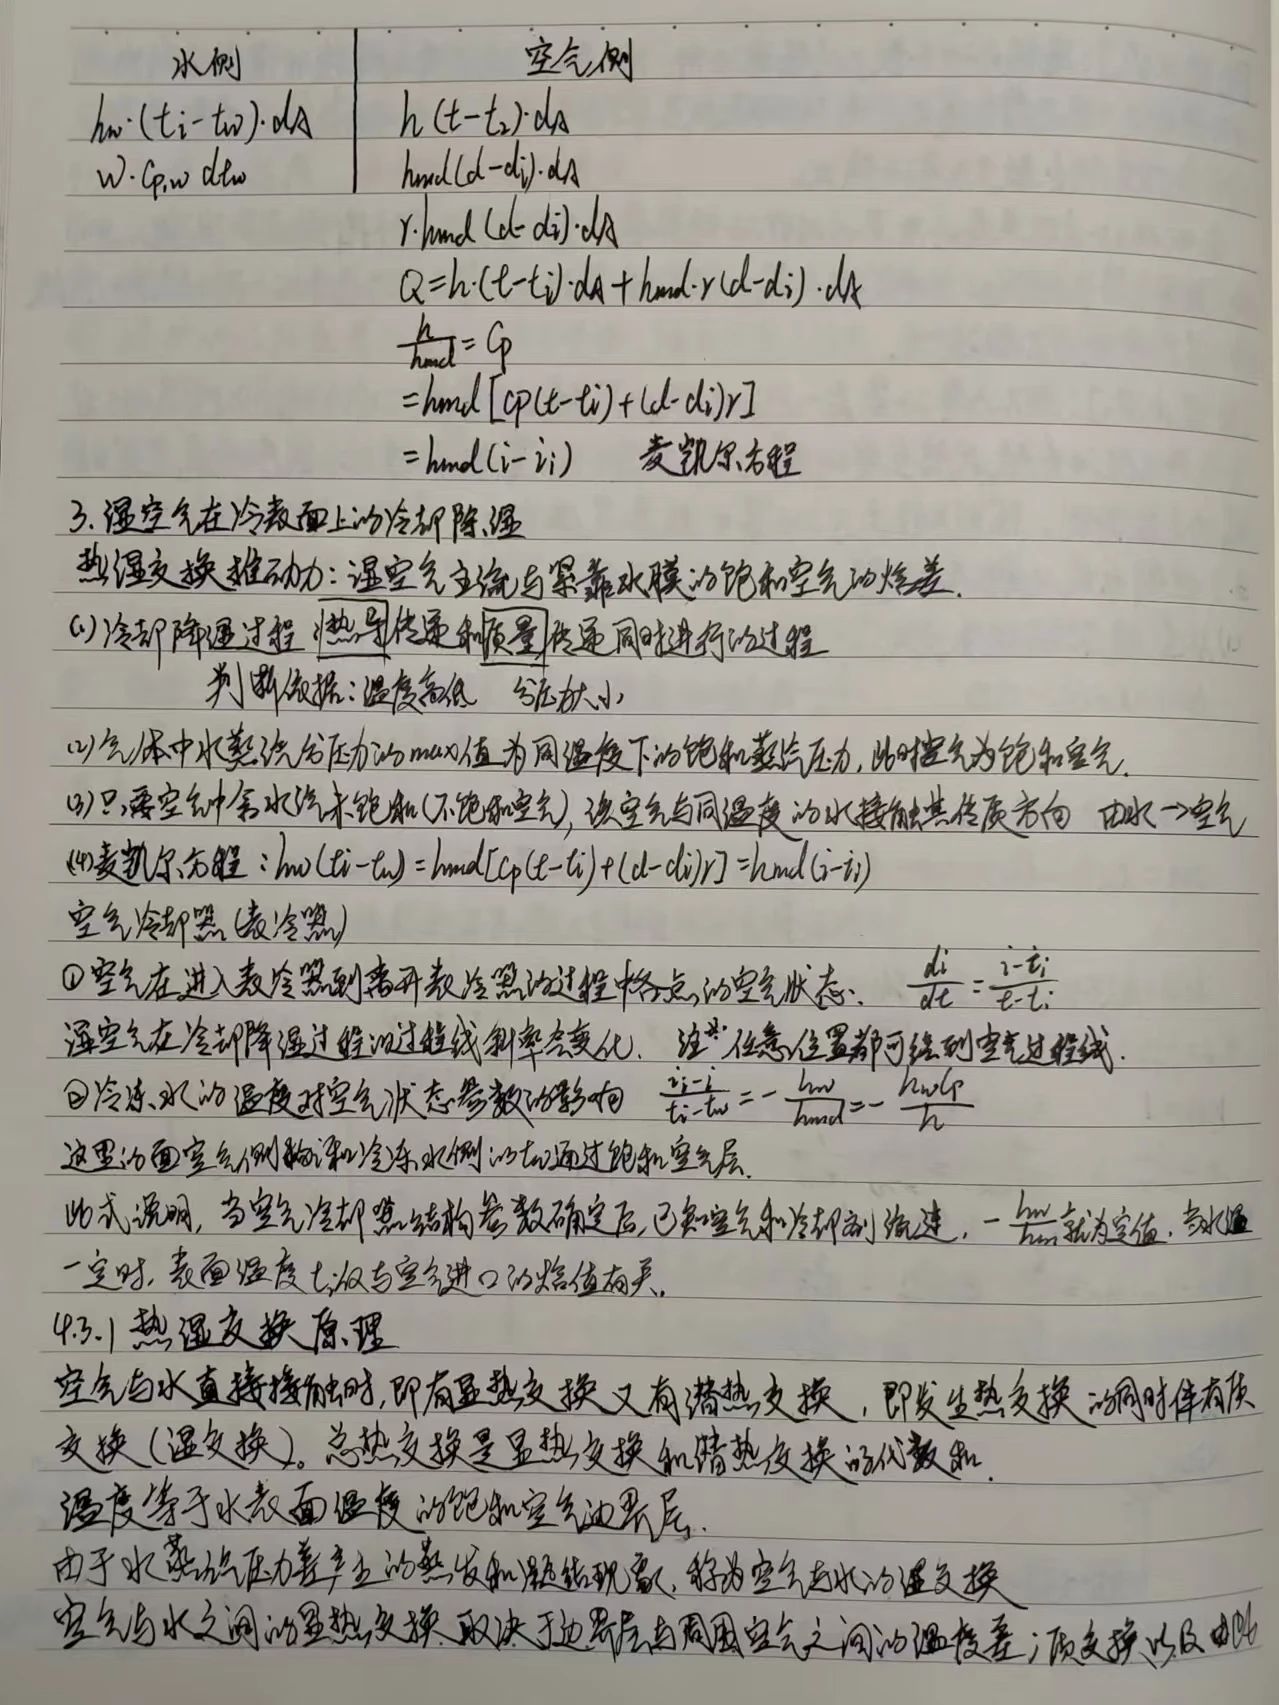 水侧 空气侧
hw·(ti-tw)·dA h(t-t2)·dA
W·Cp,w dtw hmd(d-di)·dA
r·hmd(d-di)·dA
Q=h·(t-ti)·dA+hmd·r(d-di)·dA
h/hmd=Cp
=hmd[cp(t-ti)+(d-di)r]
=hmd(i-ii) 麦凯尔方程
3.湿空气在冷表面上的冷却降湿
热湿交换推动力:湿空气主流与紧靠水膜的饱和空气的焓差.
(1)冷却降温过程 热量传递和质量传递同时进行的过程
判断依据:温度高低 分压力大小
(2)气体中水蒸汽分压力的max值为同温度下的饱和蒸汽压力,此时空气为饱和空气.
(3)只要空气中含水汽未饱和(不饱和空气),该空气与同温度的水接触其传质方向 由水→空气
(4)麦凯尔方程:hw(ti-tw)=hmd[cp(t-ti)+(d-di)r]=hmd(i-ii)
空气冷却器(表冷器)
①空气在进入表冷器到离开表冷器的过程中各点的空气状态. di/dt=i-ti/t-ti
湿空气在冷却降湿过程的过程线斜率会变化. 注*:任意位置都可绘到空气过程线.
②冷冻水的温度对空气状态参数的影响 ii-i/ti-tw=-hw/hmd=-hwCp/h
这里的面空气侧和冷冻水侧的tw通过饱和空气层.
此式说明,当空气冷却器结构参数确定后,已知空气和冷却剂流速,-hw/hm就为定值.当水温
一定时,表面温度ti仅与空气进口的焓值有关.
4.3.1 热湿交换原理
空气与水直接接触时,即有显热交换又有潜热交换,即发生热交换的同时伴有质
交换(湿交换)。总热交换是显热交换和潜热交换的代数和.
温度等于水表面温度的饱和空气边界层.
由于水蒸汽压力差产生的蒸发和凝结现象,称为空气与水的湿交换
空气与水之间的显热交换取决于边界层与周围空气之间的温度差;质交换以及由此